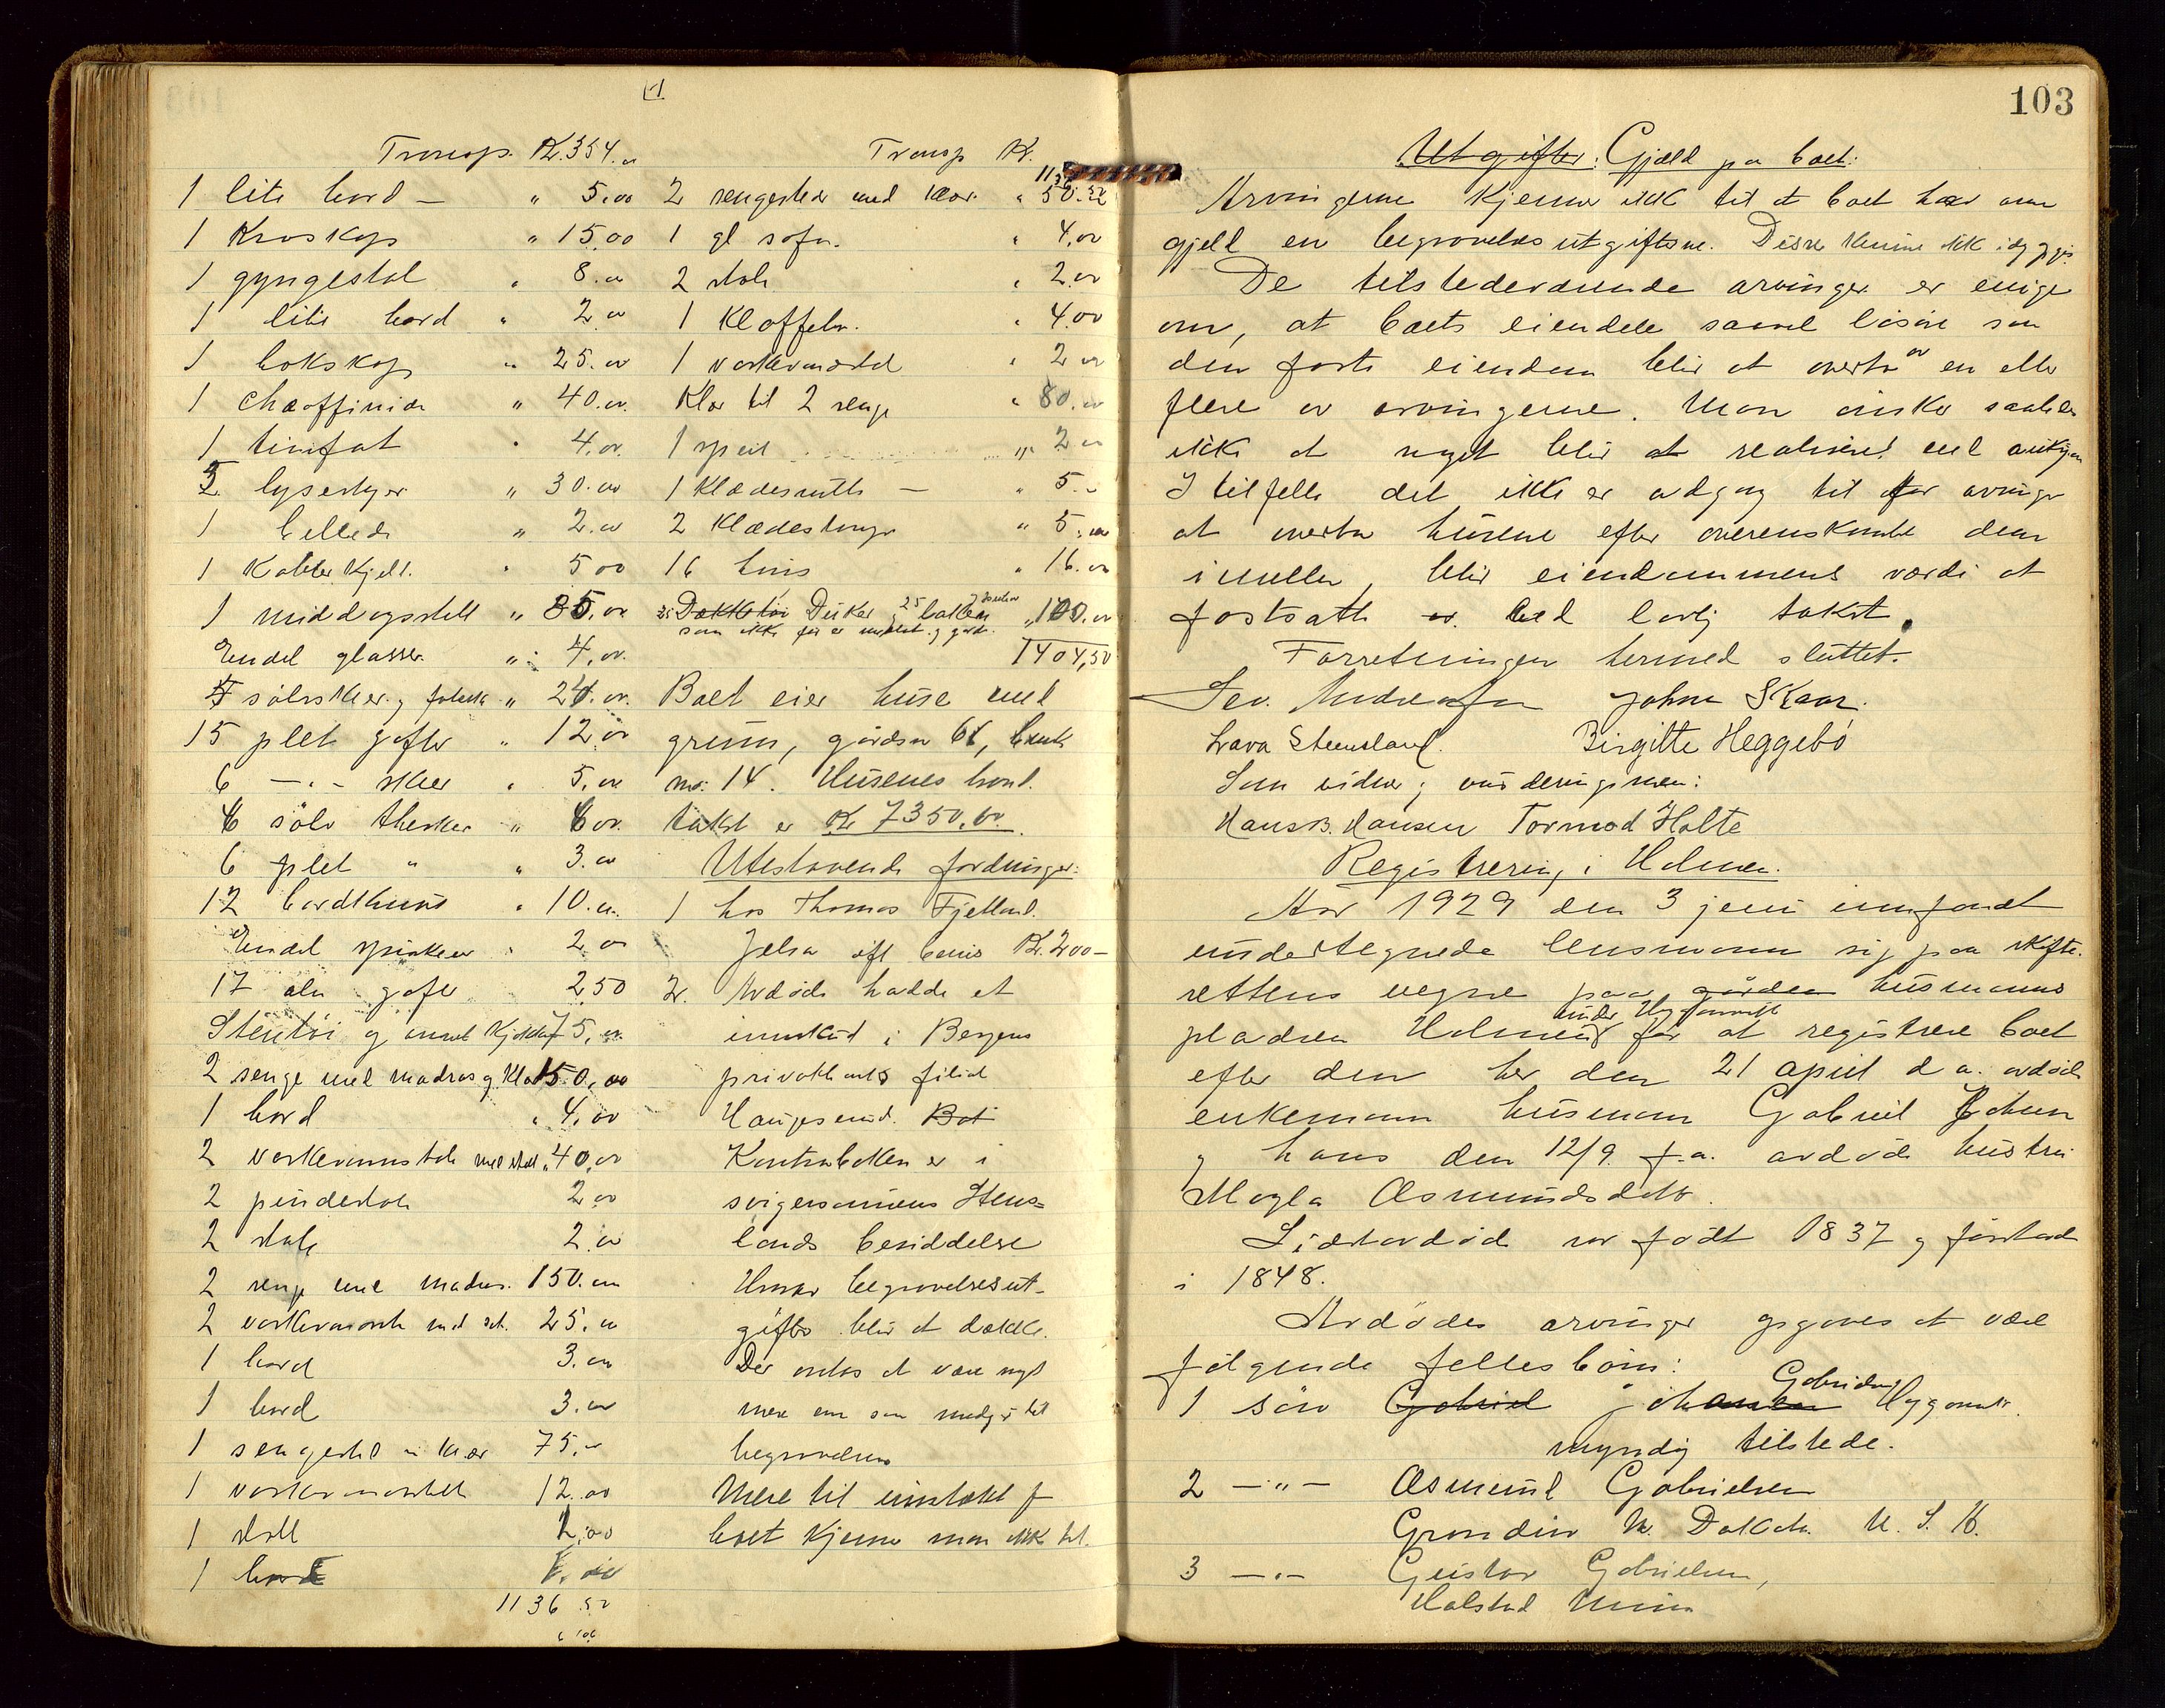 Transp. Kr. 354.00
1 lite bord — " 5.00
1 Kroskap " 15.00
1 gyngestol " 8.00
1 lite bord " 2.00
1 bokskap " 25.00
1 chaffinier " 40.00
1 tinfat " 4.00
lysestager " 30.00
1 billede " 2.00
1 Kobber Kjel. " 5 00
1 middagsstell "
Endel glasser " 4.00
sølvskeer og
15 plet gafler " 12.00
6 —"— skeer " 5.00
sølv theskeer "
6 plet " " 3.00
12 bordkniver " 10.00
Endel spiskeer " 2.00
17 alm gafler 2.50
Stentøi og annet 75.00
2 senge med madras og Klær 150.00
1 bord " 4.00
2 vaskevannstole med " 40.00
2 pindestole 2.00
2 stole 2.00
2 senge med madras. 150.00
2 vaskevannstole med 25.00
1 bord 3.00
1 bord 3.00
1 sengested m Klær 75.00
1 vaskevannstol 12.00
1 stoll
1 bord
1136.50
Transp Kr.
2 sengesteder med klær. "
1 gl sofa. " 4.00
2 stole " 2.00
1 Kloffel " 4.00
1 vaskevanstol " 2.00
Klær til 2 senge " 80.00
1 speil " 2.00
1 Klædesrulle — " 5.00
2 Klædestenger " 5.00
16 " 16.00
Duker og " 100.00
som ikke før er
1404,50
Boet eier huse med
grunn, gårdsnr 61, bruks
no: 14. Husenes brand.
takst er Kr 7350.00.
Utestaaende fordringer:
1 hos Thomas Fjelland.
Jelsa Kr. 200—
2. Avdøde hadde et
innskud i Bergens
privatbanks filial
Haugesund. Bot
Kontraboken er i
svigersønnens Stens=
lands besiddelse
Herav begravelsesut-
gifter blir at dække.
Der antas at være nogt
mere enn som medgår til
begravelsen
Mere til inntækt for
boet Kjenner man ikke til.
103
Utgifter: Gjæld på boet:
Arvingerne Kjenner ikke til at boet har anen
gjeld en begravelsesutgifterne. Disse kunne ikke idag opgis
De tilstedeværende arvinger er enige
om, at boets eiendele saavel løsøre som
den faste eiendom blir at overta av en eller
flere av arvingerne. Man ønsker saaledes
ikke at noget blir at realisere ved auksjon
I tilfelle det ikke er adgang til for arvinger
at overta husene efter overenskomst dem
imellem, blir eiendommens værdi at
fastsatte ved lovlig takst.
Forretningen hermed sluttet.
Sev. Andreassen Johan Skaar.
Lava Steensland. Birgitte Heggebø
Som vidner og vurderingsmenn:
Hans B. Hansen Tormod Holte
Registrering i Holmen.
Aar 1929 den 3 juni innfandt
undertegnede lensmann sig paa skifte-
rettens vegne paa gården husmanns
pladsen Holmen under for at registrere boet
efter den her den 21 april d a. avdøde
enkemann husmann Gabriel Johnsen
og hans den 12/9 f.a. avdøde hustru
Magla Osmundsdatter.
Sidstavdøde var født 1837 og førstavd
i 1848.
Avdødes arvinger opgaves at være
følgende fellesbørn:
1 søn Gabriel Johannes Gabrielsen
myndig tilstede.
2 —"— Osmund Gabrielsen
Grandin N. Dakota. U. S. A.
3 —"— Gustav Gabrielsen,
Halstad Minn